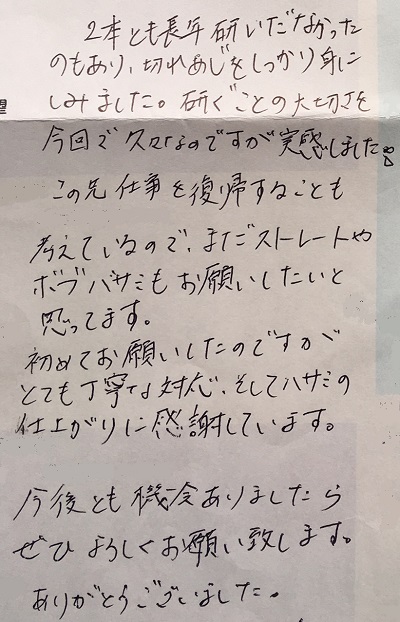 2本とも長年研いだなかった
のもあり、切れあじをしっかり身に
しみました。研ぐことの大切さを
今回で久々なのですが実感しました。
この先仕事を復帰することも
考えているので、まだストレートや
ボブバサミもお願いしたいと
思ってます。
初めてお願いしたのですが
とても丁寧な対応、そしてハサミの
仕上がりに感謝しています。
今後とも機会ありましたら
ぜひよろしくお願い致します。
ありがとうございました。